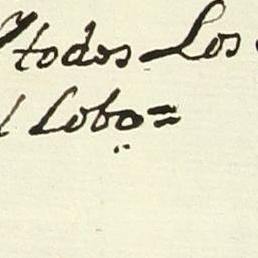 todos Los
lobo=